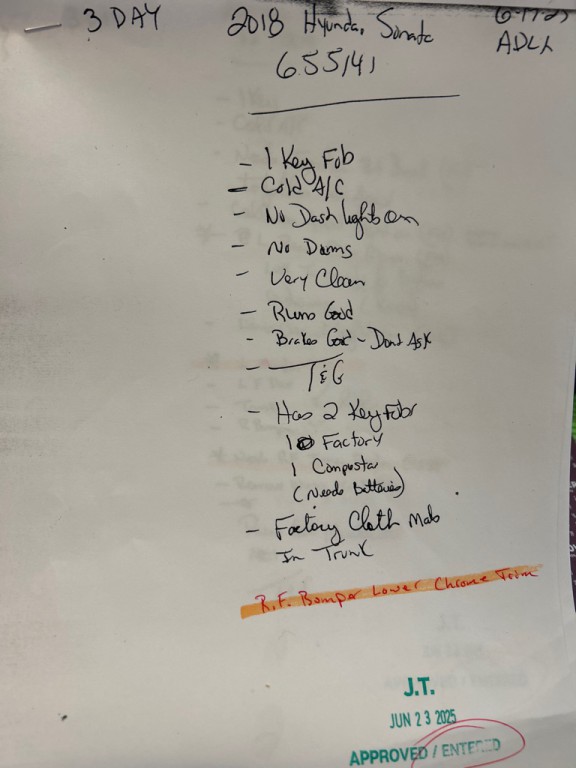 3 DAY
2018 Hyundai Sonata
655141
- 1 Key Fob
- Cold A/C
- No Dash lights on
- No Dams
- Very Clean
- Runs Good
- Brakes Good - Dont Ask
- T & G
- Has 2 Key Fobs
1 Factory
1
(Needs batteries)
- Factory Cloth Mats
In Trunk
R.F. Bumper Lower Chrome Trim
J.T.
JUN 23 2025
APPROVED / ENTERED